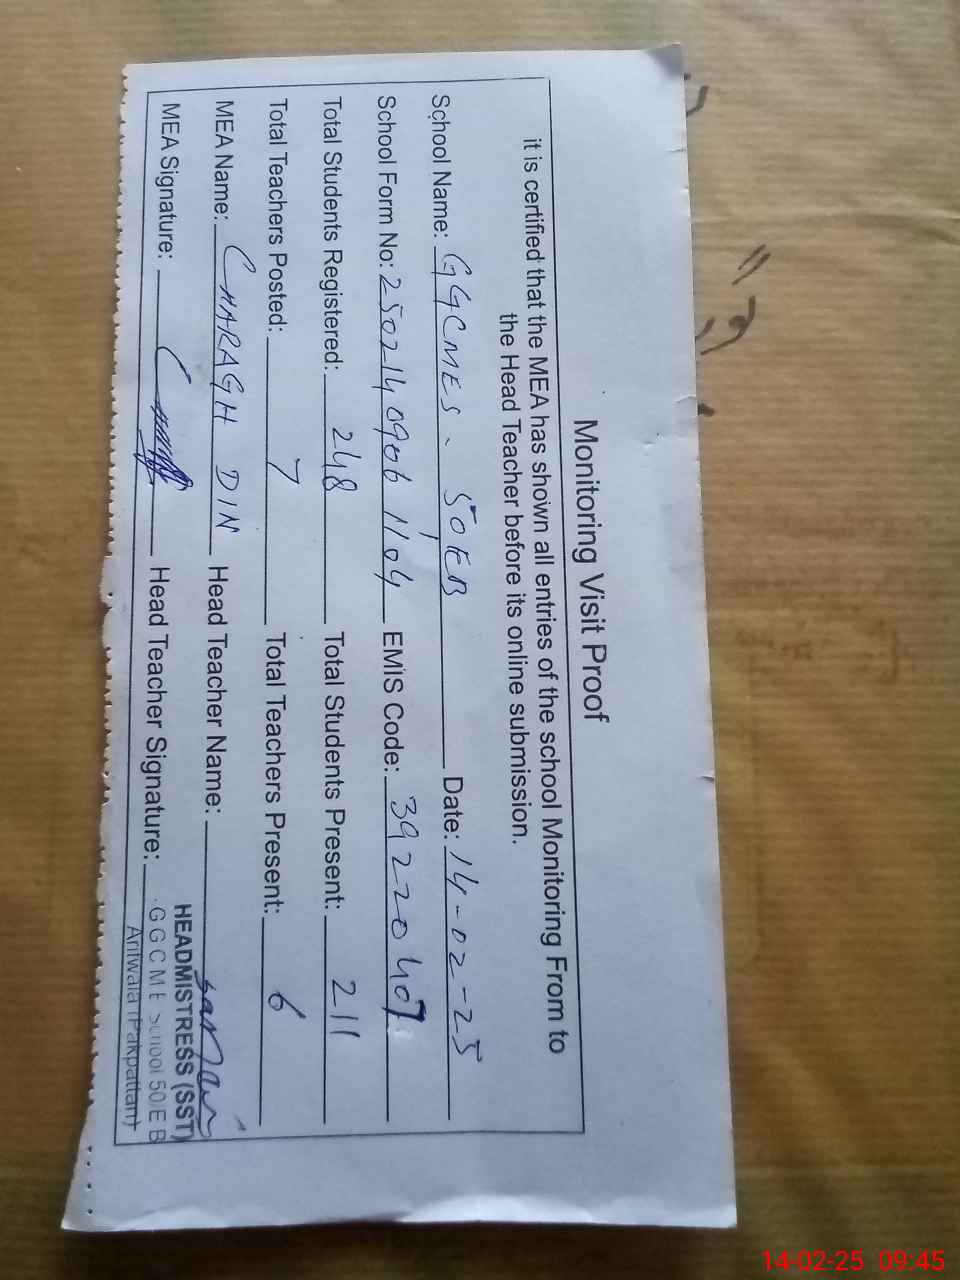 Monitoring Visit Proof
it is certified that the MEA has shown all entries of the school Monitoring From to
the Head Teacher before its online submission.
School Name: GGCMES. 50/EB Date: 14-02-25
School Form No: 250214090611 04 EMIS Code: 39220409
Total Students Registered: 248 Total Students Present: 211
Total Teachers Posted: 7 Total Teachers Present: 6
MEA Name: CHARAGH DIN Head Teacher Name:
MEA Signature: Head Teacher Signature:
HEADMISTRESS (SST)
GGCME School 50/E B
Arifwala (Pakpattan)
14-02-25 09:45